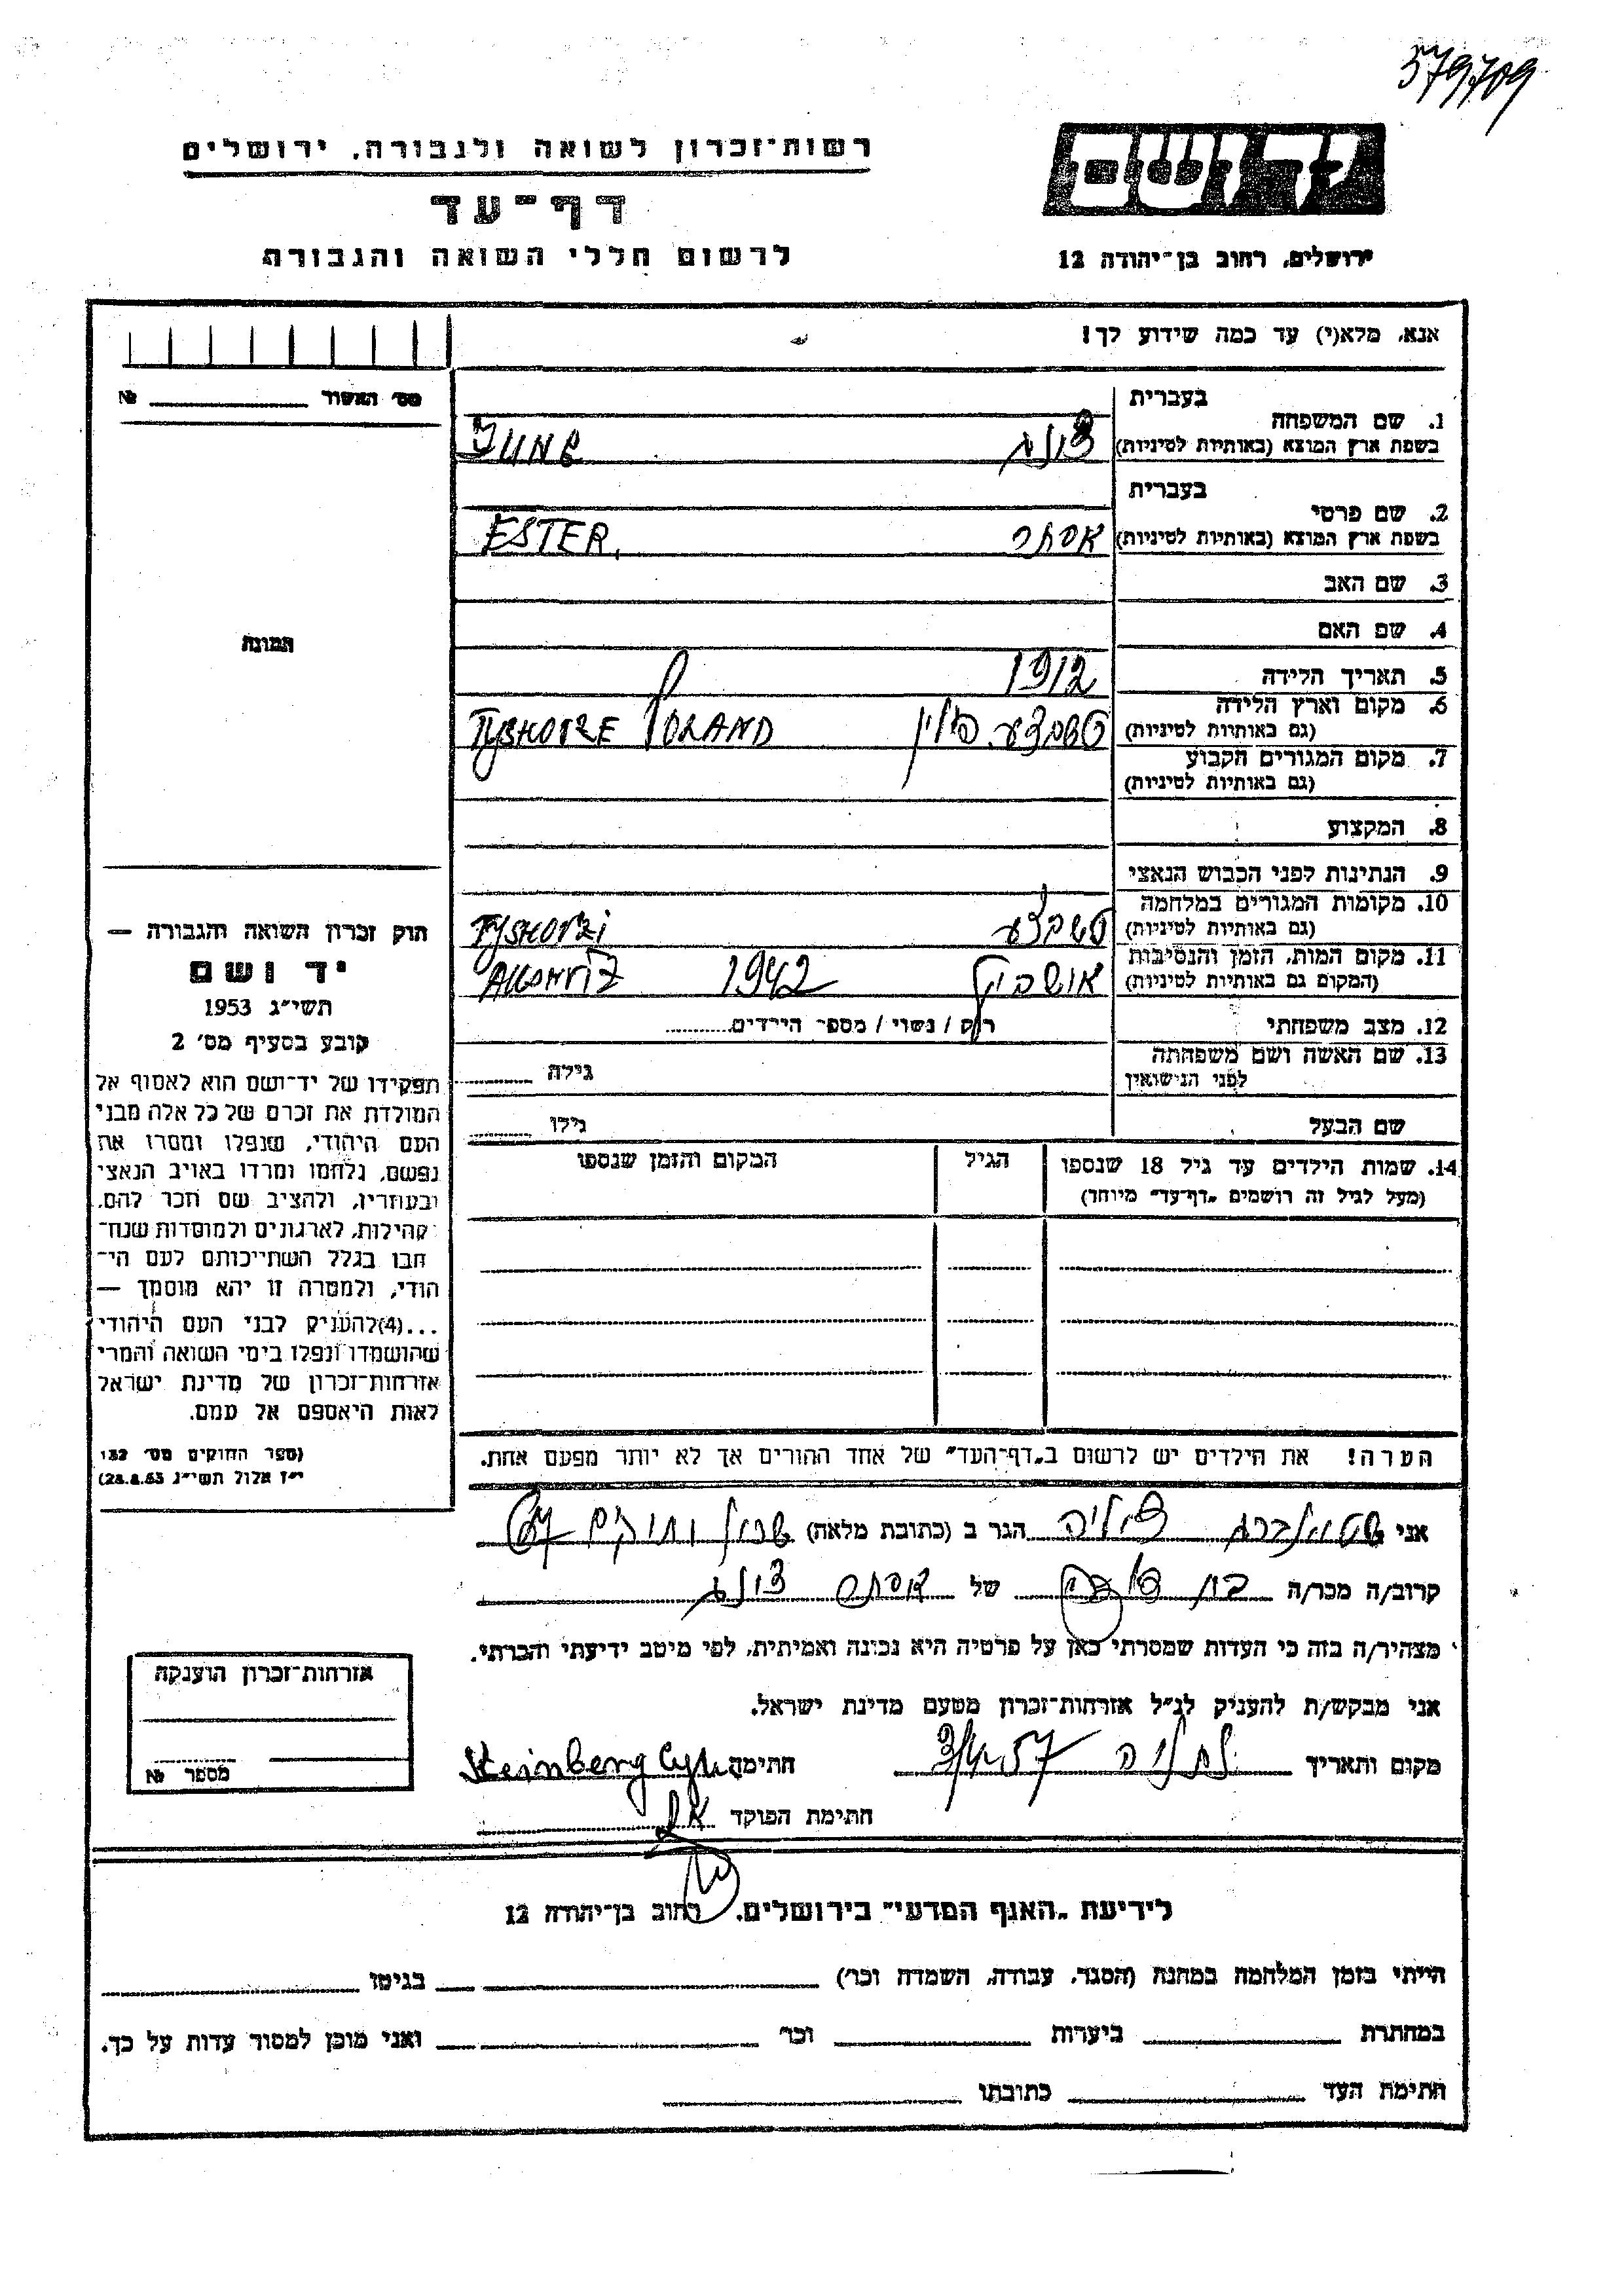 579709
רשות־זכרון לשואה ולגבורה, ירושלים
דף־עד
לרשום חללי השואה והגבורה
יד ושם
ירושלים, רחוב בן־יהודה 12
אנא, מלא(י) עד כמה שידוע לך!
מס׳ האשור №
בעברית
1. שם המשפחה
בשפת ארץ המוצא (באותיות לטיניות)
בעברית
2. שם פרטי
בשפת ארץ המוצא (באותיות לטיניות) אסתר ESTER
3. שם האב
4. שם האם
5. תאריך הלידה 1912
6. מקום וארץ הלידה
(גם באותיות לטיניות) פולין POLAND
7. מקום המגורים הקבוע
(גם באותיות לטיניות)
8. המקצוע
9. הנתינות לפני הכבוש הנאצי
10. מקומות המגורים במלחמה
(גם באותיות לטיניות)
11. מקום המות, הזמן והנסיבות
(המקום גם באותיות לטיניות) 1942
12. מצב משפחתי רוק / נשוי / מספר הילדים
13. שם האשה ושם משפחתה
לפני הנישואין גילה
שם הבעל גילו
14. שמות הילדים עד גיל 18 שנספו הגיל המקום והזמן שנספו
(מעל לגיל זה רושמים „דף־עד״ מיוחד)
הערה! את הילדים יש לרשום ב„דף־העד״ של אחד ההורים אך לא יותר מפעם אחת.
תמונה
חוק זכרון השואה והגבורה —
יד ושם
תשי״ג 1953
קובע בסעיף מס׳ 2
תפקידו של יד־ושם הוא לאסוף אל
המולדת את זכרם של כל אלה מבני
העם היהודי, שנפלו ומסרו את
נפשם, נלחמו ומרדו באויב הנאצי
ובעוזריו, ולהציב שם וזכר להם,
לקהילות, לארגונים ולמוסדות שנח־
רבו בגלל השתייכותם לעם הי־
הודי, ולמטרה זו יהא מוסמך —
...(4)להעניק לבני העם היהודי
שהושמדו ונפלו בימי השואה והמרי
אזרחות־זכרון של מדינת ישראל
לאות היאספם אל עמם.
(ספר החוקים מס׳ 132
י״ז אלול תשי״ג 28.8.53)
אני שטאינברג צילה הגר ב (כתובת מלאה)
קרוב/ה מכר/ה של אסתר
מצהיר/ה בזה כי העדות שמסרתי כאן על פרטיה היא נכונה ואמיתית, לפי מיטב ידיעתי והכרתי.
אני מבקש/ת להעניק לנ״ל אזרחות־זכרון מטעם מדינת ישראל.
מקום ותאריך נתניה חתימה Steinberg
חתימת הפוקד
אזרחות־זכרון הוענקה
מספר №
לידיעת „האגף המדעי״ בירושלים, רחוב בן־יהודה 12
הייתי בזמן המלחמה במחנה (הסגר, עבודה, השמדה וכו׳) בגיטו
במחתרת ביערות וכו׳ ואני מוכן למסור עדות על כך.
חתימת העד כתובתו